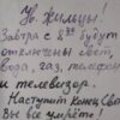 Ув. жильцы!
Завтра с 8 00 будут
отключены свет,
вода, газ, телефон
и телевизор.
Наступит конец света
Вы все умрёте!